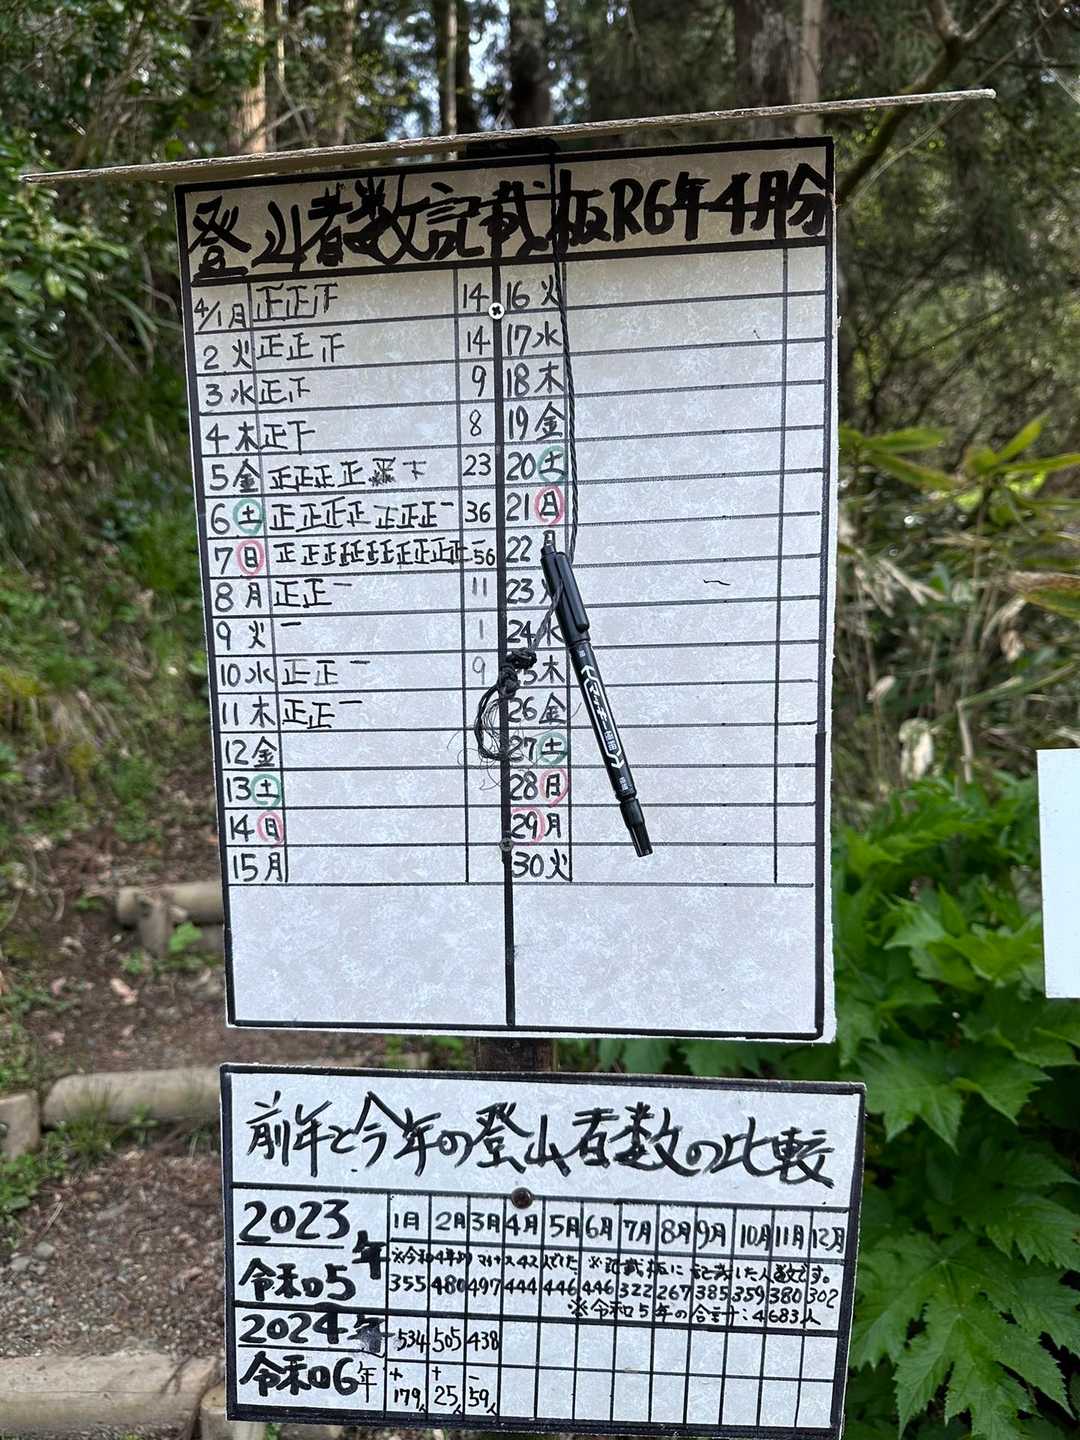 登山者数記載板R6年4月分
4/1月 正正下 14
2 火 正正下 14
3 水 正下 9
4 木 正下 8
5 金 正正正正 下 23
6 土 正正正正正正正一 36
7 日 正正正正正正正正正正正一 56
8 月 正正一 11
9 火 一 1
10 水 正正一 9
11 木 正正一
12 金
13 土
14 日
15 月
16 火
17 水
18 木
19 金
20 土
21 日
22 月
23 火
24 水
25 木
26 金
27 土
28 日
29 月
30 火
前年と今年の登山者数の比較
2023年 1月 2月 3月 4月 5月 6月 7月 8月 9月 10月 11月 12月
※令和4年より マイナス42人でした ※記載板に記載した人数です。
令和05 355 480 497 444 446 446 322 267 385 359 380 302
※令和05年の合計:4,683人
2024年 534 505 438
令和06年 +179人 +25人 -59人